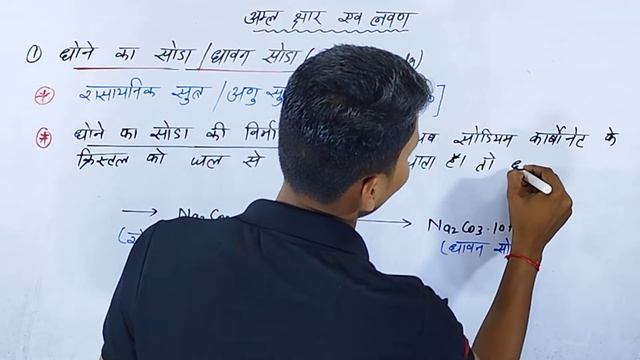 अम्ल क्षार एवं लवण
① धोने का सोडा / धावन सोडा (
* रासायनिक सुत्र / अणु सु ]
* धोने का सोडा की निर्मा जब सोडियम कार्बोनेट के
क्रिस्टल को जल से जाता है। तो
→ Na₂Co → Na₂Co₃·10
(धावन सो